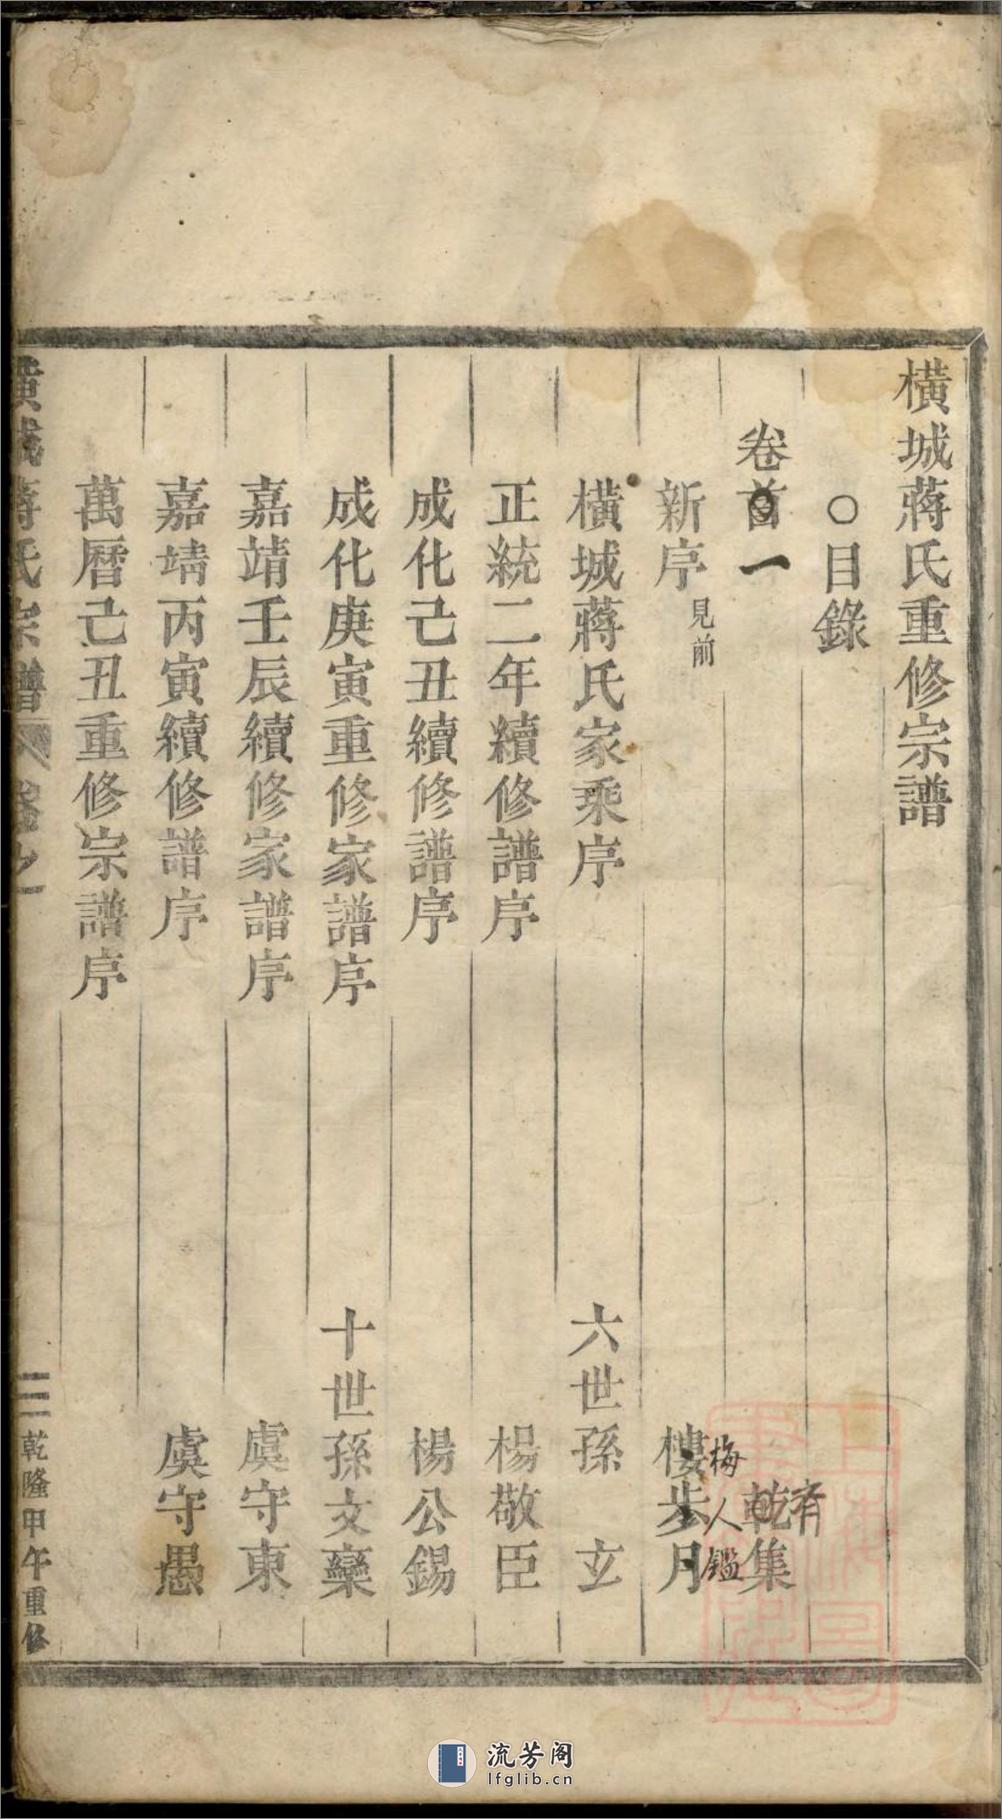 橫城蔣氏重修宗譜
○目錄
卷首一 乾集
新序 見前 樓步月
梅人鑑
橫城蔣氏家乘序 六世孫 玄
正統二年續修譜序 楊敬臣
成化己丑續修譜序 楊公錫
成化庚寅重修家譜序 十世孫文欒
嘉靖壬辰續修家譜序 虞守東
嘉靖丙寅續修譜序 虞守愚
萬曆己丑重修宗譜序
橫城蔣氏宗譜 卷之一
三 乾隆甲午重修
流芳阁
lfglib.cn